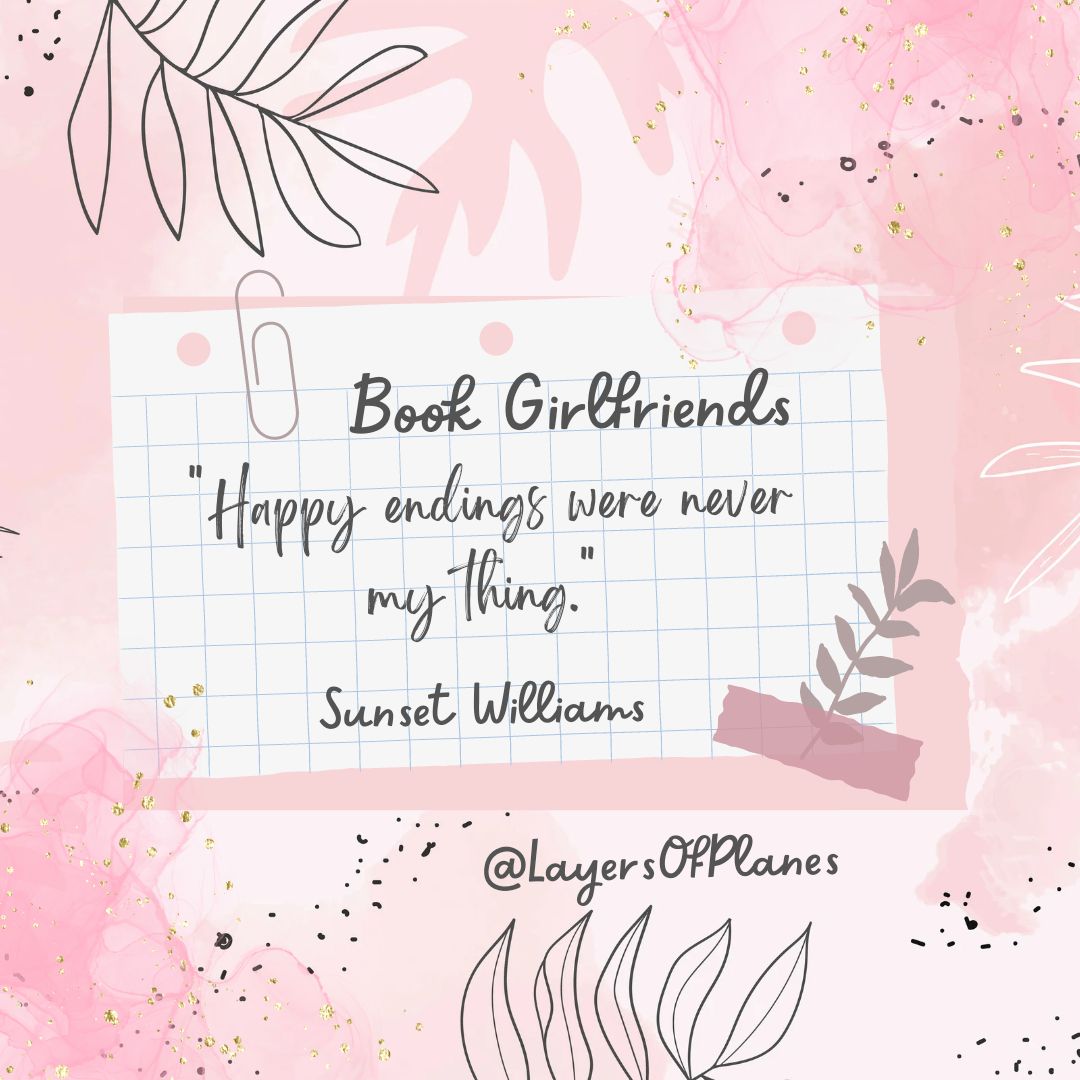 Book Girlfriends
"Happy endings were never
my thing."
Sunset Williams
@LayersOfPlanes